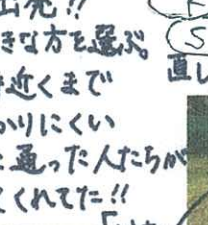 出発!!
きな方を選ぶ。
近くまで
かりにくい
通った人たちが
くれてた!!
S
直し